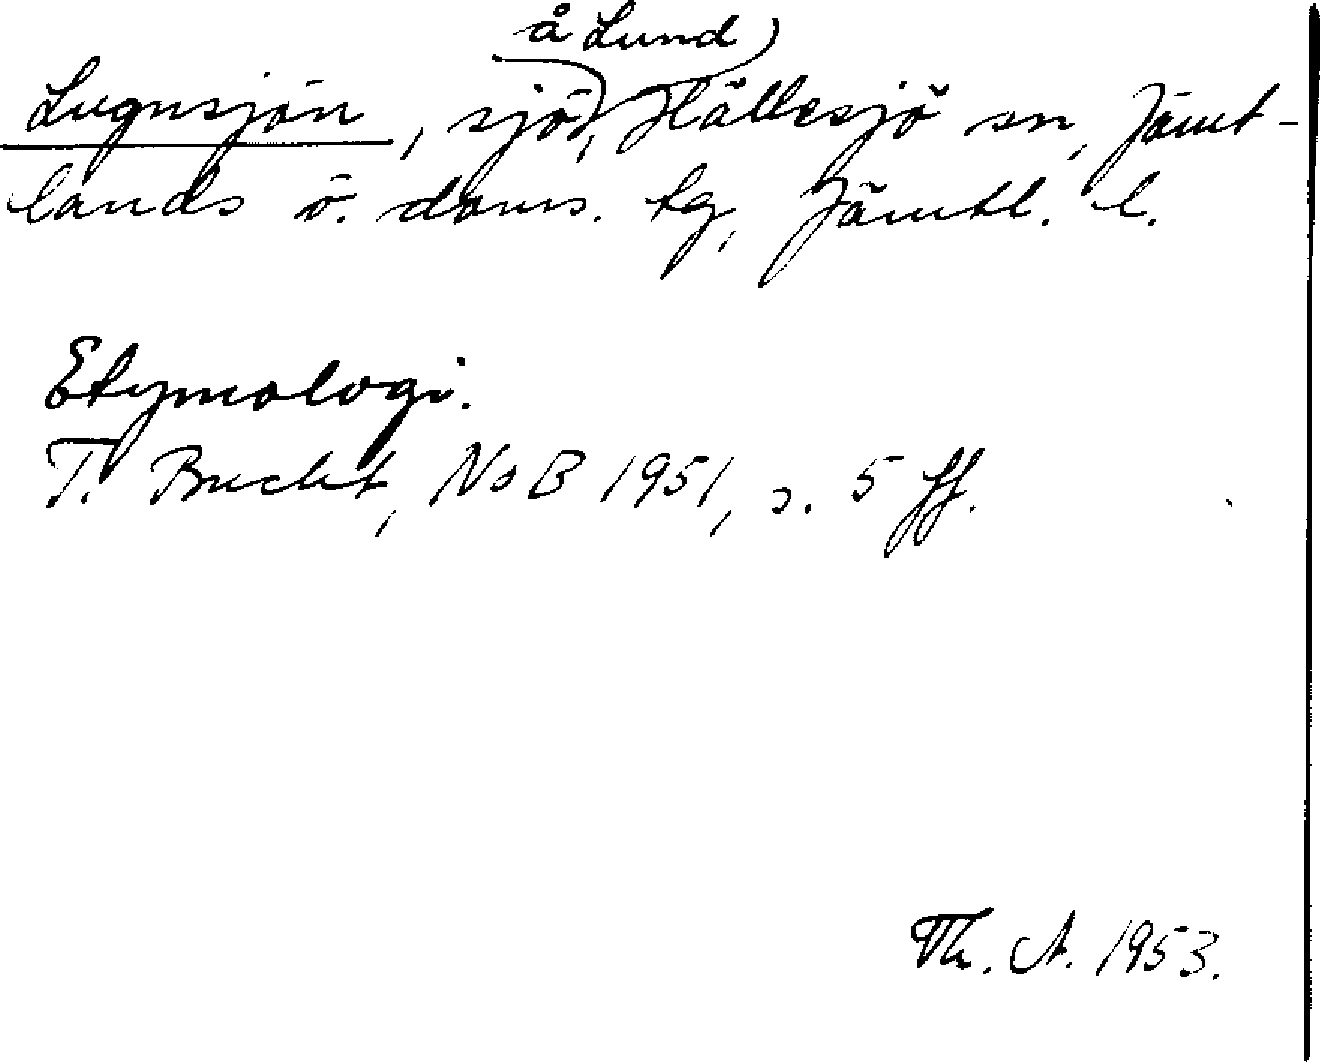 å Lund
Lugnsjön, sjö, Hällesjö sn, Jämt-
lands ö. doms. tg, Jämtl. l.
Etymologi.
T. Bucht, NoB 1951, s. 5 ff.
Th. A. 1953.